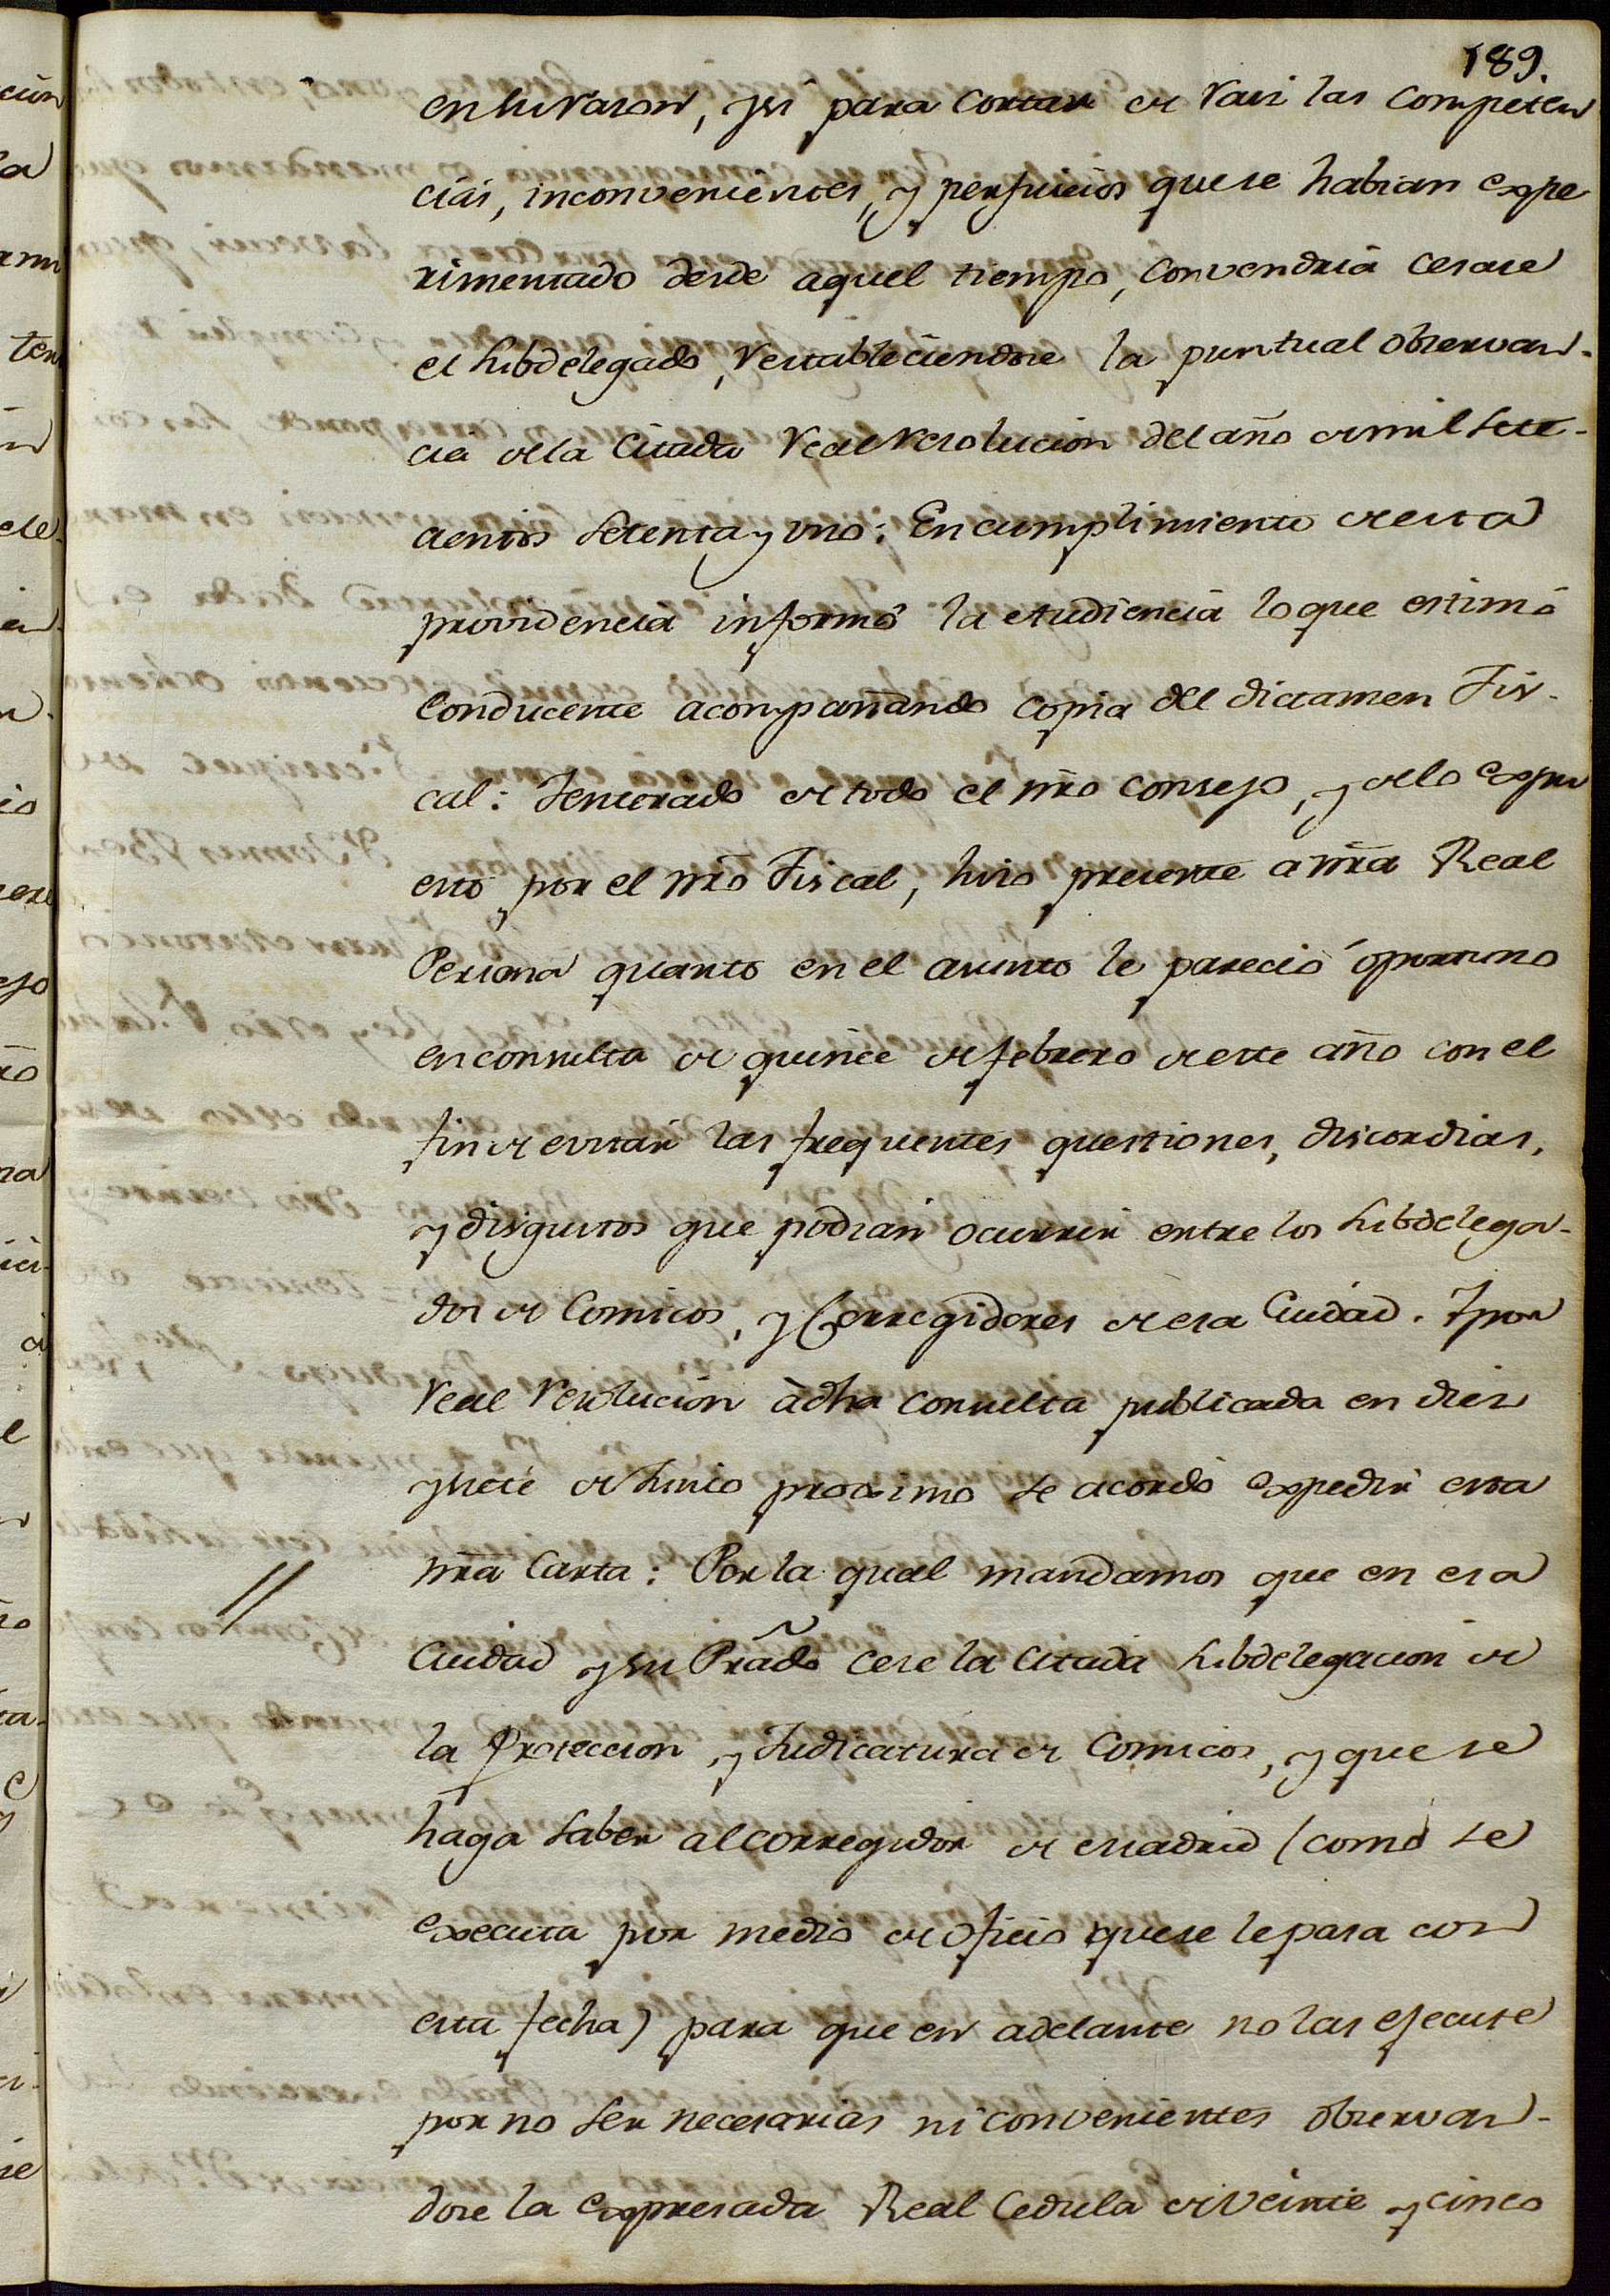 189.
en su razon, y si para cortar de raiz las competen
cias, inconvenientes, y perjuicios que se habian expe
rimentado desde aquel tiempo, convendria cesase
el subdelegado, restableciendose la puntual observan-
cia de la citada Real resolucion del año de mil sete-
cientos setenta y uno: En cumplimiento de esta
providencia informó la Audiencia lo que estimó
conducente acompañando copia del dictamen Fis-
cal: Y enterado de todo el nrõ consejo, y de lo expu
esto por el nrõ Fiscal, hizo presente a nrã Real
Persona quanto en el asunto le pareció oportuno
en consulta de quince de febrero de este año con el
fin de evitar las frequentes questiones, discordias,
y disgustos que podian ocurrir entre los subdelega-
dos de Comicos, y Corregidores de esa Ciudad. Y por
Real resolucion à dha consulta publicada en diez
y siete de Junio proximo se acordó expedir esta
nrã Carta: Por la qual mandamos que en esa
Ciudad y su Rnãdo cese la citada subdelegacion de
la Proteccion, y Judicatura de Comicos, y que se
haga saber al corregidor de Madrid (como se
executa por medio de oficio que se le pasa con
esta fecha) para que en adelante no las ejecute
por no ser necesarias ni convenientes observan-
dose la expresada Real Cedula de veinte y cinco